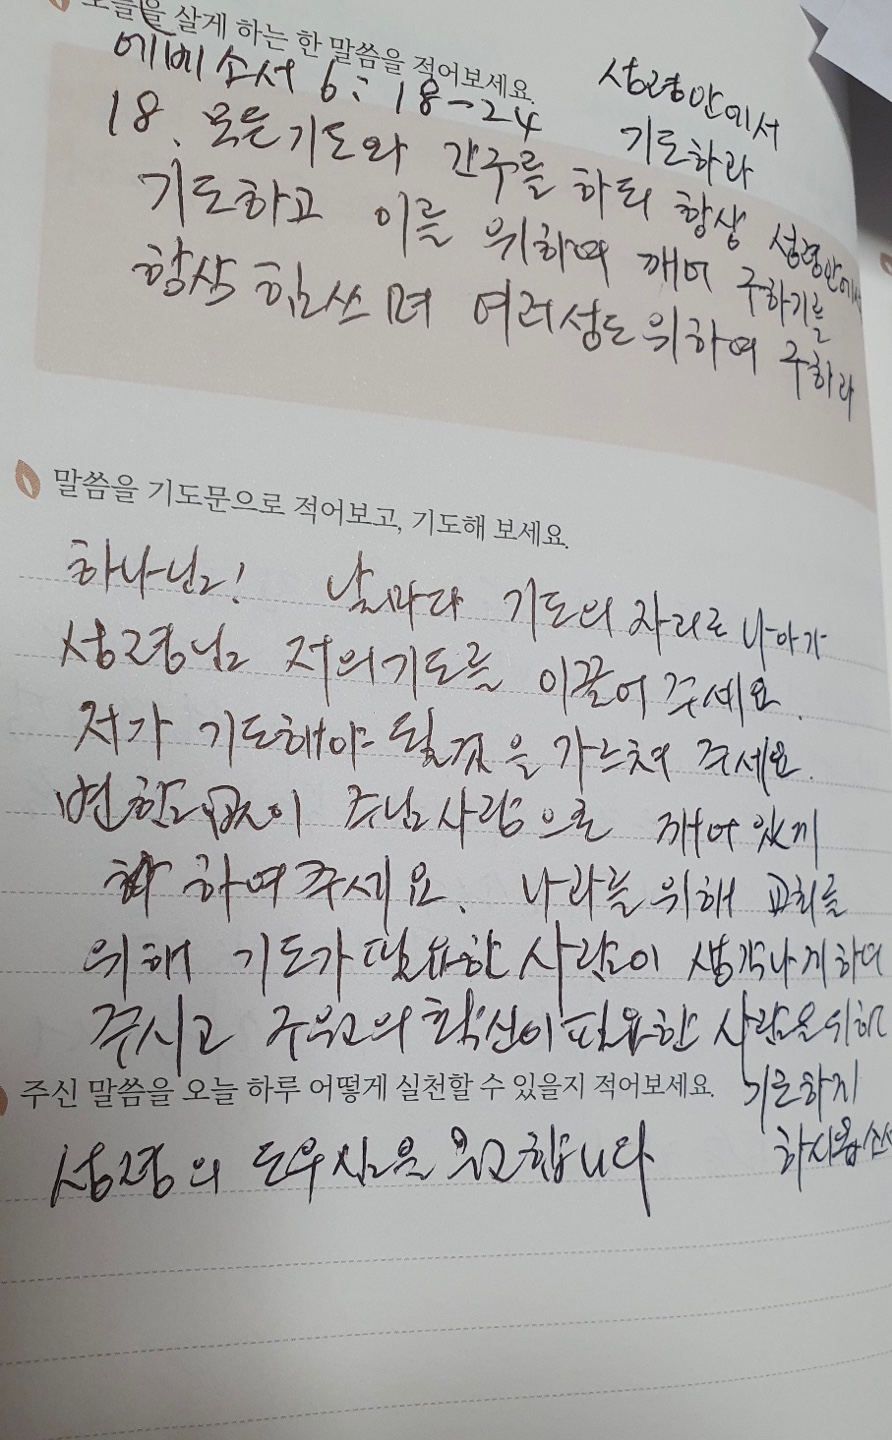 오늘을 살게 하는 한 말씀을 적어보세요.
에베소서 6:18-24 성령안에서
기도하라
18. 모든기도와 간구를 하되 항상 성령안에서
기도하고 이를 위하여 깨어 구하기를
항상 힘쓰며 여러성도 위하여 구하라
말씀을 기도문으로 적어보고, 기도해 보세요.
하나님! 날마다 기도의 자리로 나아가
성령님 저의기도를 이끌어 주세요.
저가 기도해야 될것을 가르쳐 주세요.
변함없이 주님사람으로 깨어있게
하여주세요. 나라를 위해 교회를
위해 기도가 필요한 사람이 생각나게하여
주시고 구원의 확신이필요한 사람을위해
기도하게
하시옵소서
주신 말씀을 오늘 하루 어떻게 실천할 수 있을지 적어보세요.
성령의 도우심을 구합니다